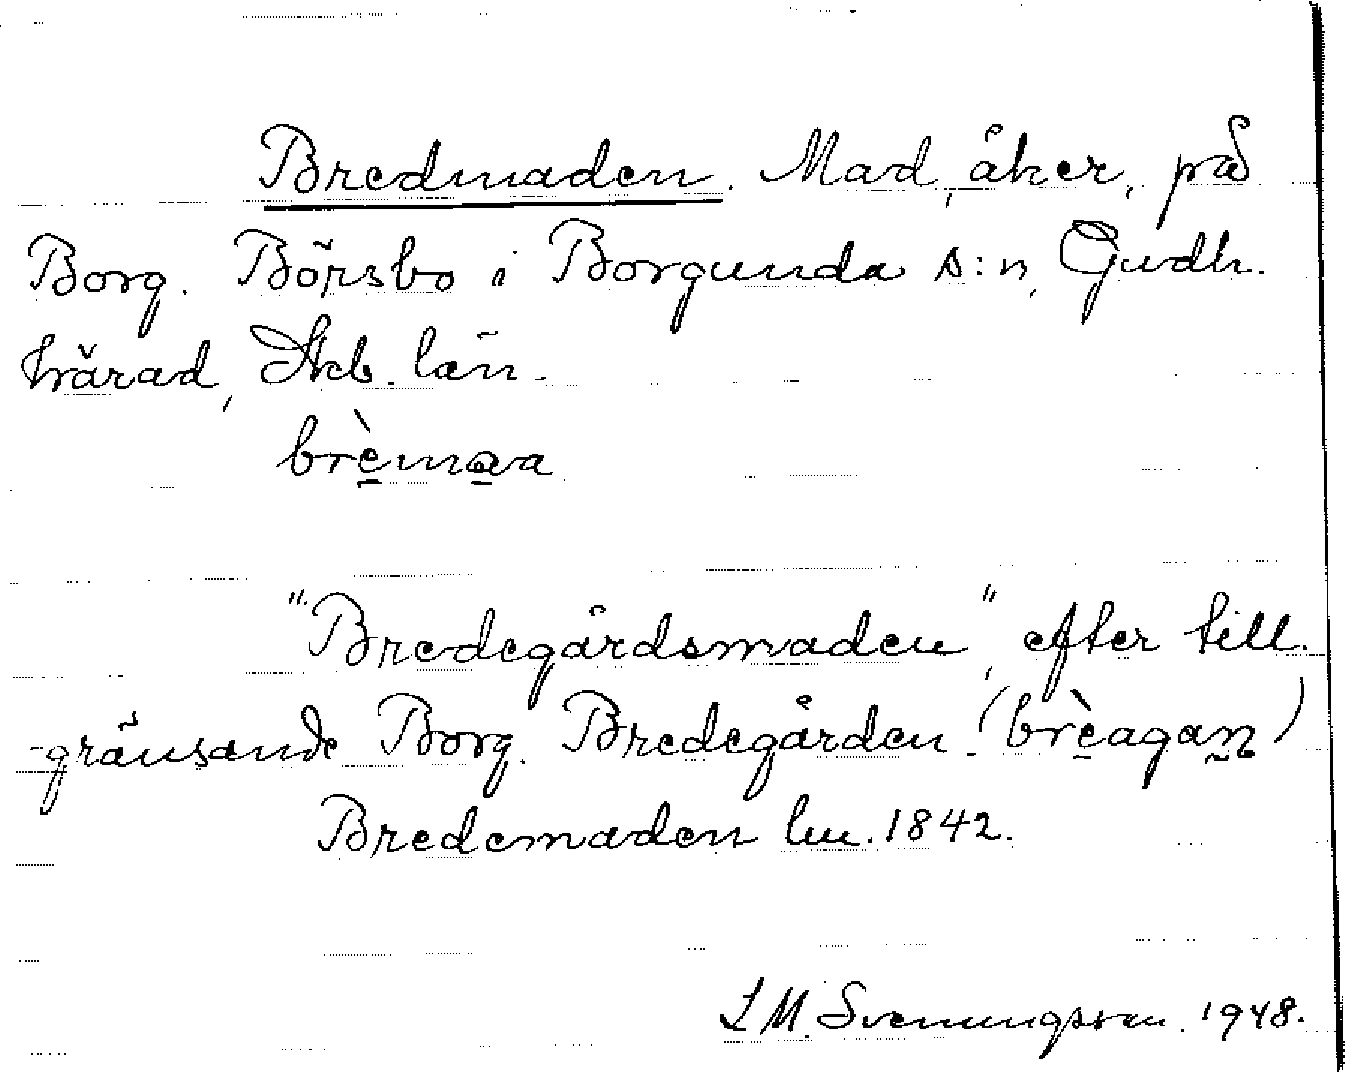 Bredmaden. Mad, åker, på
Borg. Börsbo i Borgunda s:n, Gudh.
härad, Skb. län.
brèmaa
"Bredegårdsmaden", efter till-
gränsande Borg. Bredegården. (brèagan)
Bredemaden lm. 1842.
L M. Svenungsson. 1948.